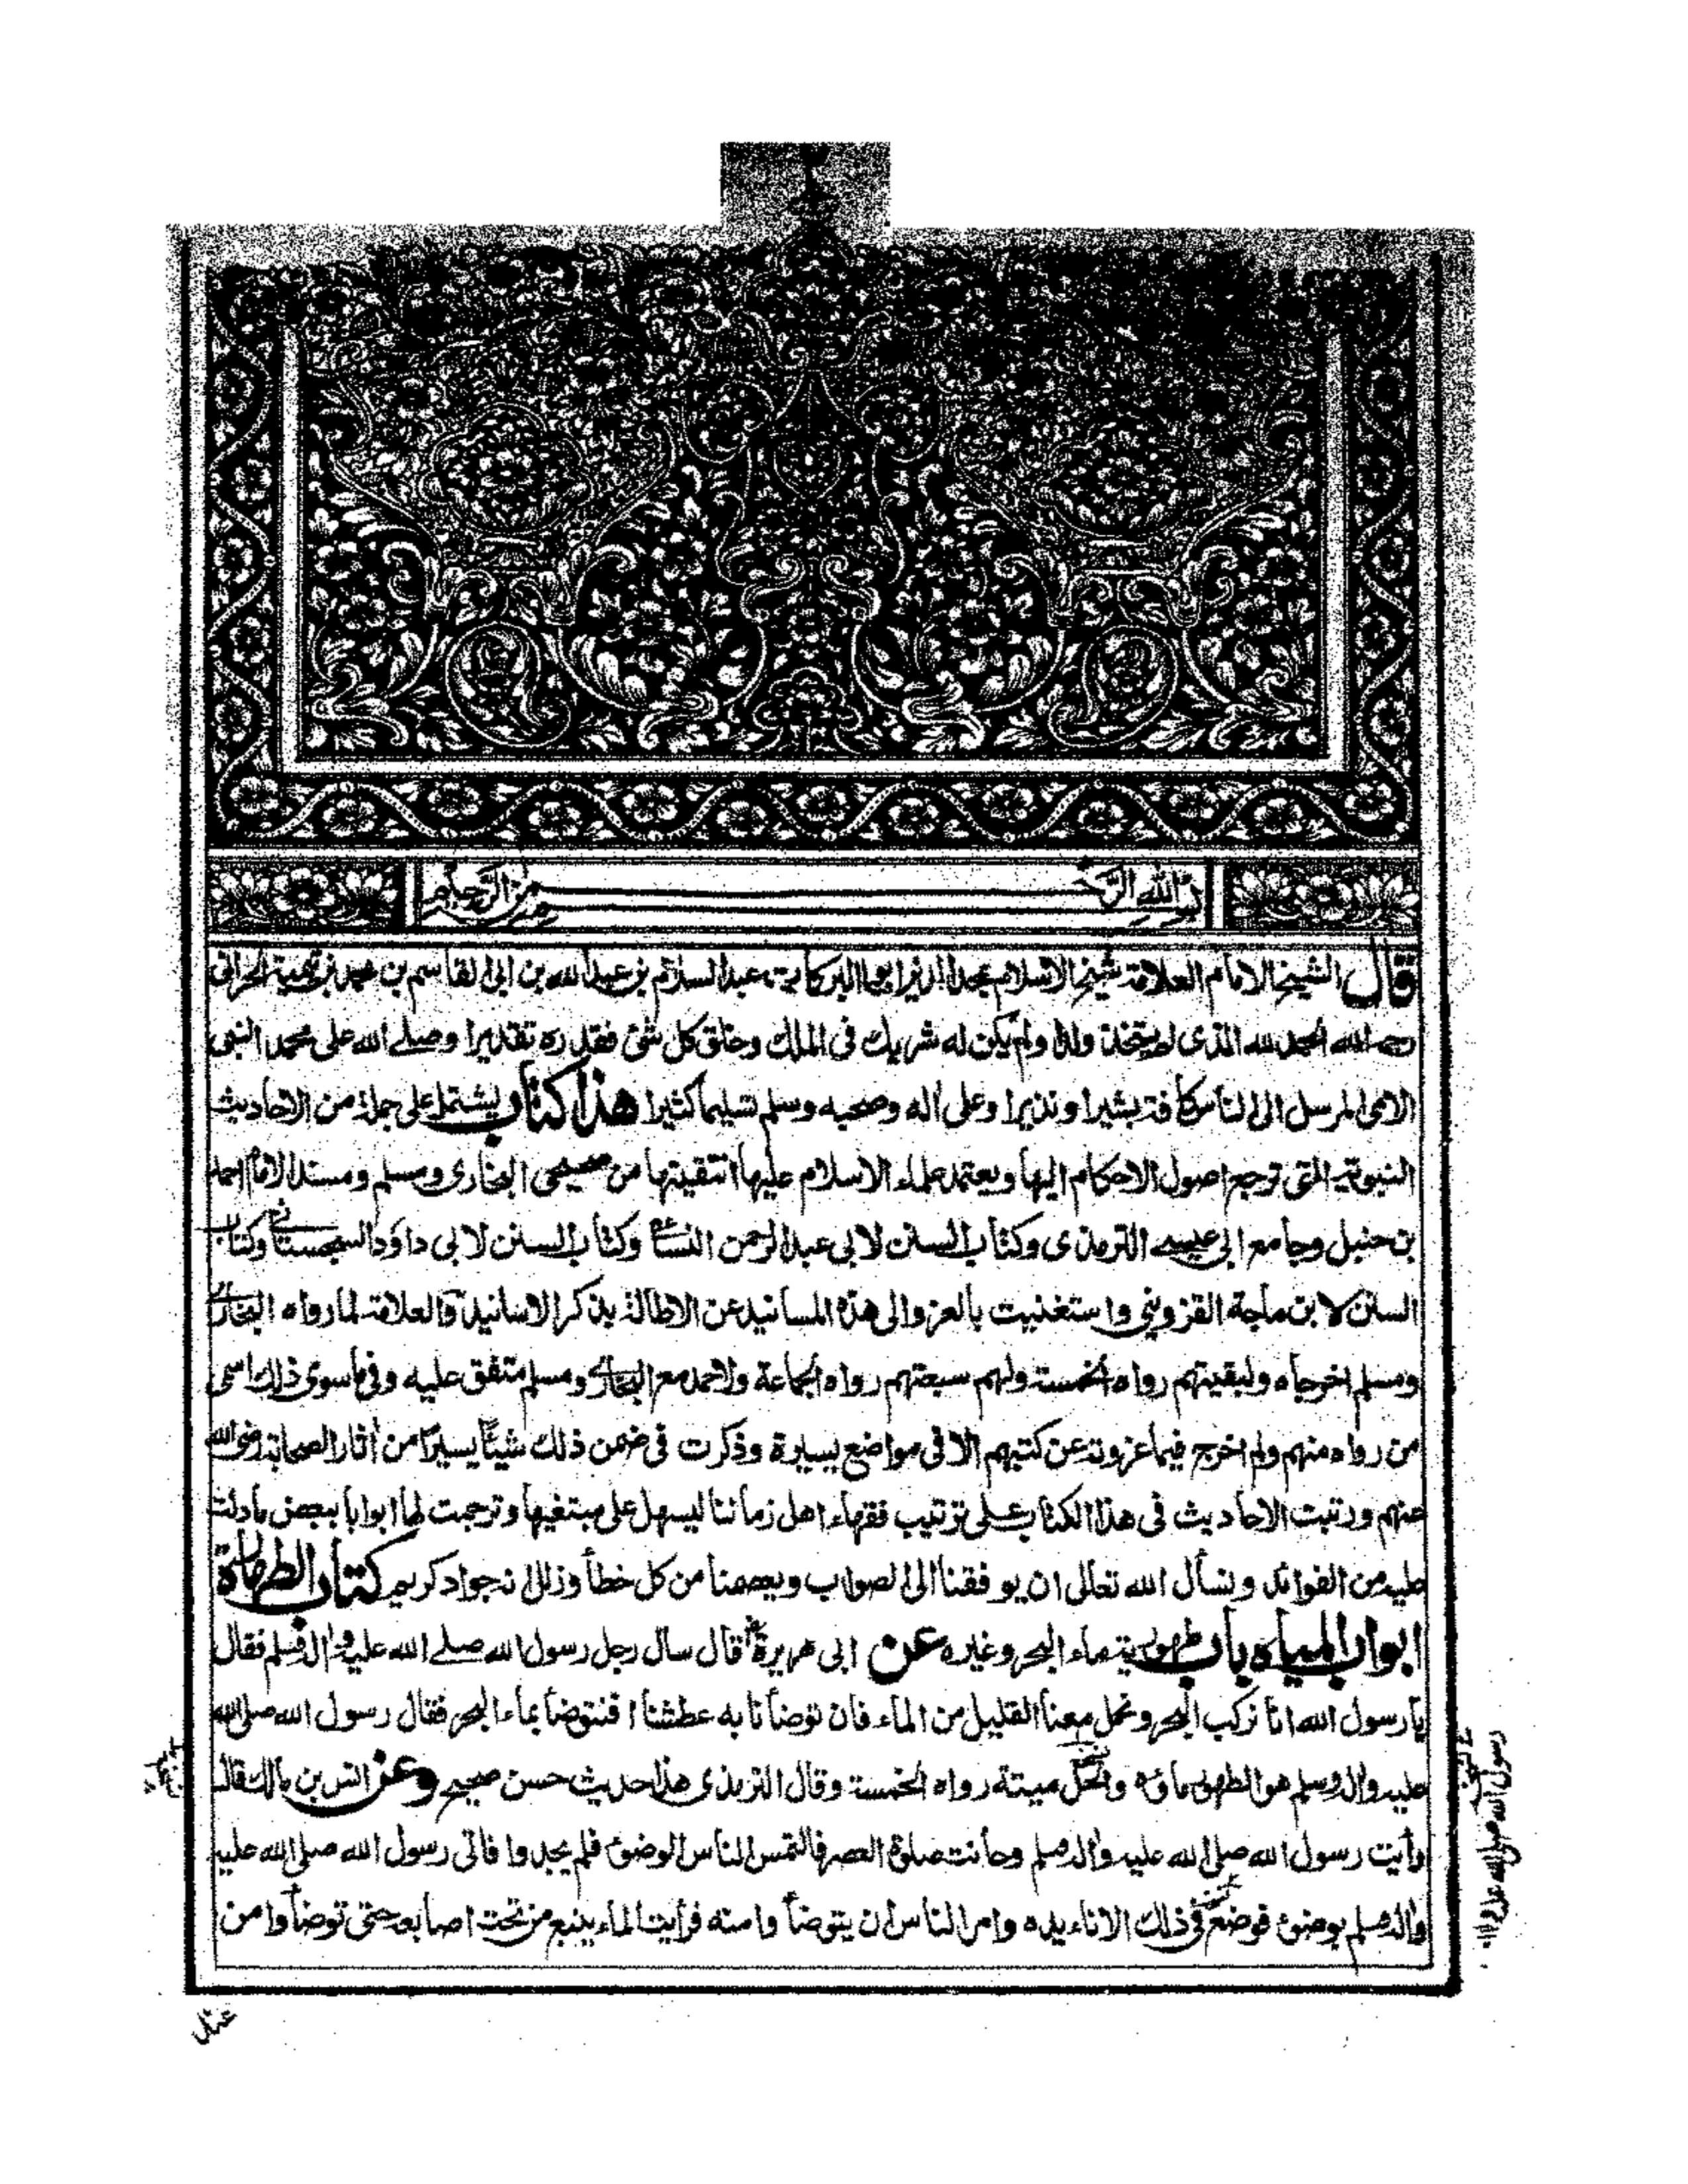 بسم الله الرحمن الرحيم
قال الشيخ الامام العلامة شيخ الاسلام مجد الدين ابو البركات عبد السلام بن عبد الله بن ابى القاسم بن محمد بن تيمية الحرانى
رحمه الله الحمد لله الذى لم يتخذ ولدا ولم يكن له شريك فى الملك وخلق كل شئ فقدره تقديرا وصلے الله على محمد النبى
الامى المرسل الى الناس كافة بشيرا ونذيرا وعلى اله وصحبه وسلم تسليما كثيرا هذا كتاب يشتمل على جملة من الاحاديث
النبوية التى ترجع اصول الاحكام اليها ويعتمد علماء الاسلام عليها انتقيتها من صحيحى البخارى ومسلم ومسند الامام احمد
بن حنبل وجامع ابى عيسے الترمذى وكتاب السنن لابى عبد الرحمن النسائے وكتاب السنن لابى داؤد السجستانے وكتاب
السنن لابن ماجة القزوينى واستغنيت بالعزو الى هذه المسانيد عن الاطالة بذكر الاسانيد والعلامة لما رواه البخارے
ومسلم اخرجاه ولبقيتهم رواه الخمسة ولهم سبعتهم رواه الجماعة ولاحمد مع البخارے ومسلم متفق عليه وفيما سوى ذلك اسمى
من رواه منهم ولم اخرج فيما عزوته عن كتبهم الا فى مواضع يسيرة وذكرت فى ضمن ذلك شيئا يسيرا من اثار الصحابة رضى الله
عنهم ورتبت الاحاديث فى هذا الكتاب على ترتيب فقهاء اهل زماننا ليسهل على مبتغيها وترجمت لها ابوابا ببعض ما دلت
عليه من الفوائد ونسأل الله تعالى ان يوفقنا الى الصواب ويعصمنا من كل خطأ وزلل انه جواد كريم كتاب الطهارة
ابواب المياه باب طهورية ماء البحر وغيره عن ابى هريرة قال سال رجل رسول الله صلے الله عليه واله وسلم فقال
يا رسول الله انا نركب البحر ونحمل معنا القليل من الماء فان توضأنا به عطشنا افنتوضأ بماء البحر فقال رسول الله صلى الله
عليه واله وسلم هو الطهور ماؤه والحل ميتته رواه الخمسة وقال الترمذى هذا حديث حسن صحيح وعن انس بن مالك قال
رأيت رسول الله صلى الله عليه واله وسلم وحانت صلوة العصر فالتمس الناس الوضوء فلم يجدوا فاتى رسول الله صلى الله عليه
واله وسلم بوضوء فوضع فى ذلك الاناء يده وامر الناس ان يتوضأ وا منه فرأيت الماء ينبع من تحت اصابعه حتى توضأوا من
رسول الله صلى الله عليه واله
عند